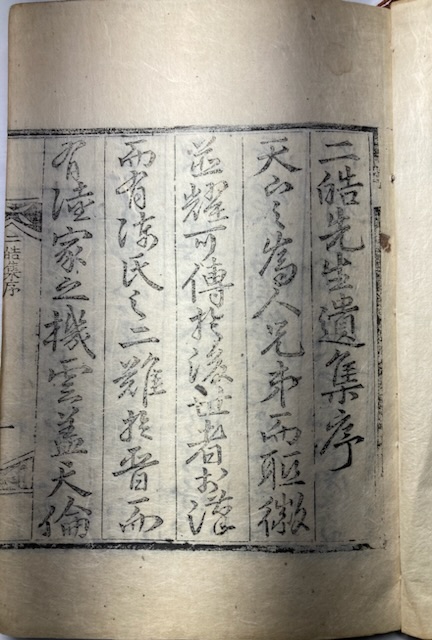 二皓先生遺集序
天下之爲人兄弟而聯徽
並耀可傳於後世者於漢
而有陳氏之二難於晉而
有陸家之機雲蓋天倫
二皓集序
一